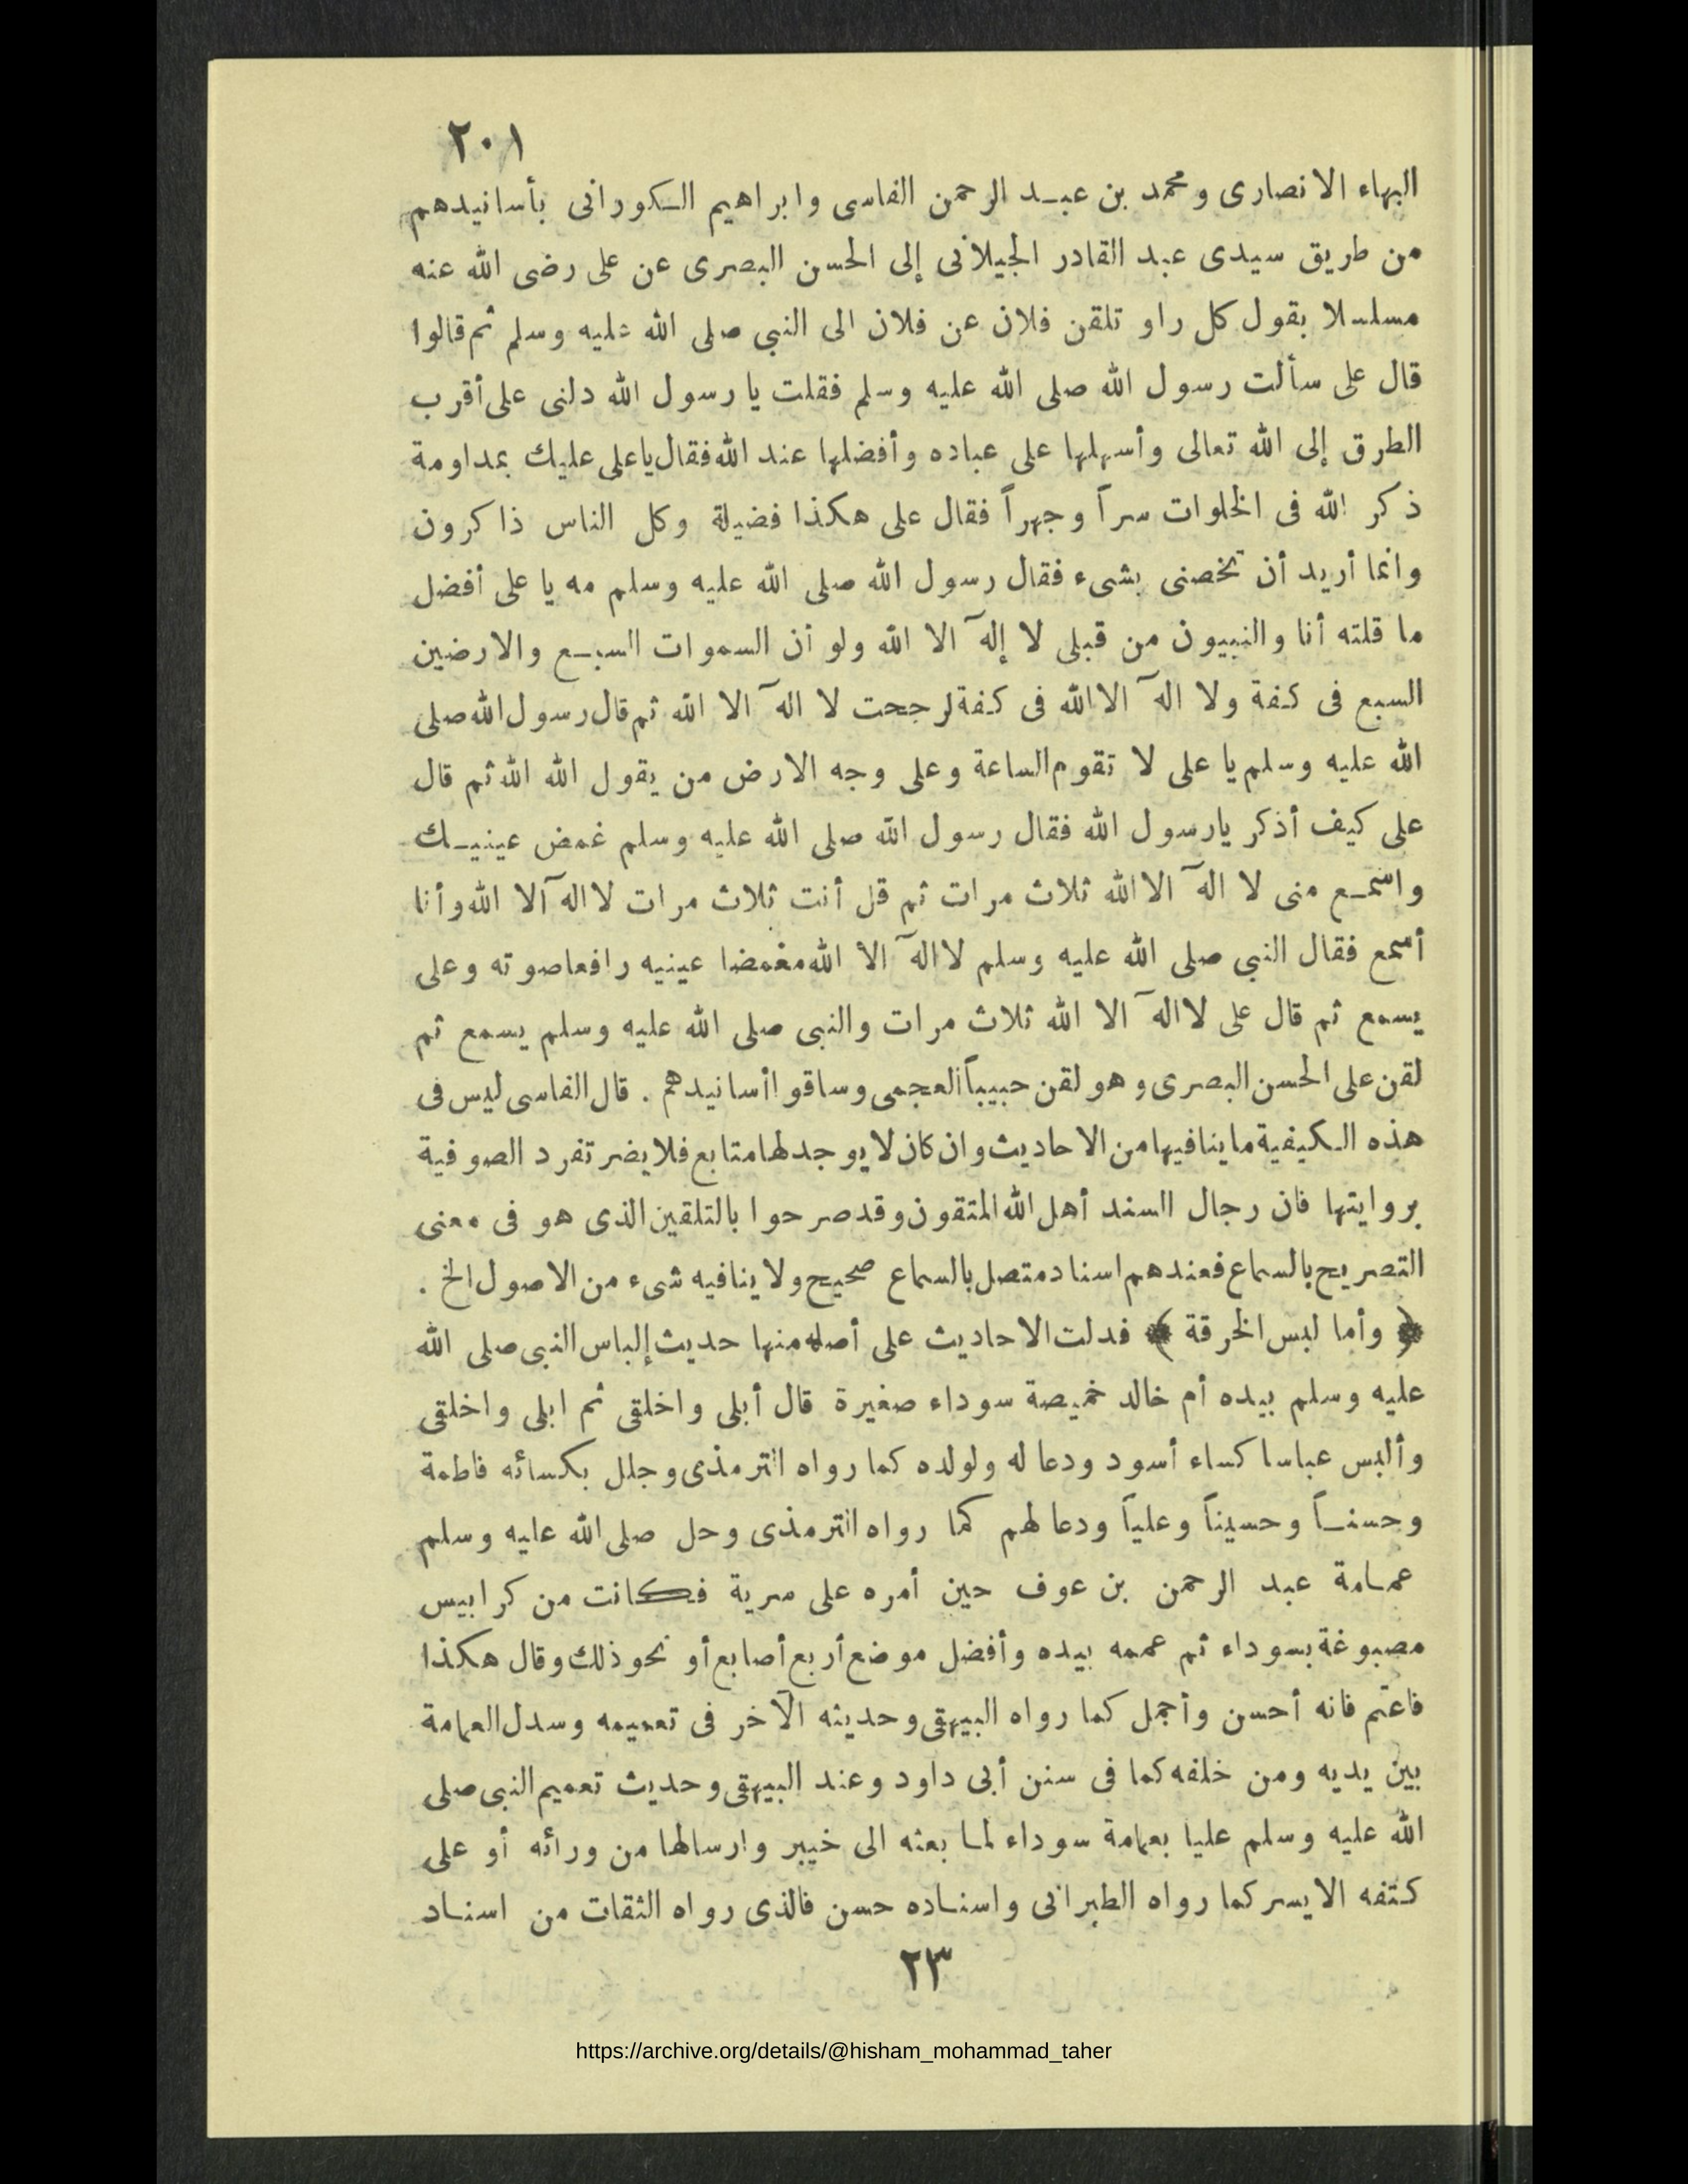 ٢٠١
البهاء الانصارى ومحمد بن عبد الرحمن الفاسى وابراهيم الكورانى بأسانيدهم
من طريق سيدى عبد القادر الجيلانى إلى الحسن البصرى عن على رضى الله عنه
مسلسلا بقول كل راو تلقن فلان عن فلان الى النبي صلى الله عليه وسلم ثم قالوا
قال على سألت رسول الله صلى الله عليه وسلم فقلت يا رسول الله دلنى على أقرب
الطرق إلى الله تعالى وأسهلها على عباده وأفضلها عند الله فقال ياعلى عليك بمداومة
ذكر الله فى الخلوات سراً وجهراً فقال على هكذا فضيلة وكل الناس ذاكرون
وانما أريد أن تخصنى بشىء فقال رسول الله صلى الله عليه وسلم مه يا على أفضل
ما قلته أنا والنبيون من قبلى لا إلهَ الا الله ولو أن السموات السبع والارضين
السبع فى كفة ولا الهَ الا الله فى كفة لرجحت لا الهَ الا الله ثم قال رسول الله صلى
الله عليه وسلم يا على لا تقوم الساعة وعلى وجه الارض من يقول الله الله ثم قال
على كيف أذكر يارسول الله فقال رسول الله صلى الله عليه وسلم غمض عينيك
واسمع منى لا الهَ الا الله ثلاث مرات ثم قل أنت ثلاث مرات لا الهَ الا الله وأنا
أسمع فقال النبي صلى الله عليه وسلم لا الهَ الا الله مغمضا عينيه رافعا صوته وعلى
يسمع ثم قال على لا الهَ الا الله ثلاث مرات والنبى صلى الله عليه وسلم يسمع ثم
لقن على الحسن البصرى وهو لقن حبيباً العجمى وساقوا أسانيدهم . قال الفاسى ليس فى
هذه الكيفية ما ينافيها من الاحاديث وان كان لا يوجد لها متابع فلا يضر تفرد الصوفية
بروايتها فان رجال السند أهل الله المتقون وقد صرحوا بالتلقين الذى هو فى معنى
التصريح بالسماع فعندهم اسناد متصل بالسماع صحيح ولا ينافيه شىء من الاصول الخ .
﴿ وأما لبس الخرقة ﴾ فدلت الاحاديث على أصله منها حديث إلباس النبى صلى الله
عليه وسلم بيده أم خالد خميصة سوداء صغيرة قال أبلى واخلقى ثم ابلى واخلقى
وألبس عباسا كساء أسود ودعا له ولولده كما رواه الترمذى وجلل بكسائه فاطمة
وحسناً وحسيناً وعلياً ودعا لهم كما رواه الترمذى وحل صلى الله عليه وسلم
عمامة عبد الرحمن بن عوف حين أمره على سرية فكانت من كرابيس
مصبوغة بسوداء ثم عممه بيده وأفضل موضع أربع أصابع أو نحو ذلك وقال هكذا
فاعتم فانه أحسن وأجمل كما رواه البيهقى وحديثه الآخر فى تعميمه وسدل العمامة
بين يديه ومن خلفه كما فى سنن أبى داود وعند البيهقى وحديث تعميم النبى صلى
الله عليه وسلم عليا بعمامة سوداء لما بعثه الى خيبر وارسالها من ورائه أو على
كتفه الايسر كما رواه الطبرانى واسناده حسن فالذى رواه الثقات من اسناد
٢٣
https://archive.org/details/@hisham_mohammad_taher